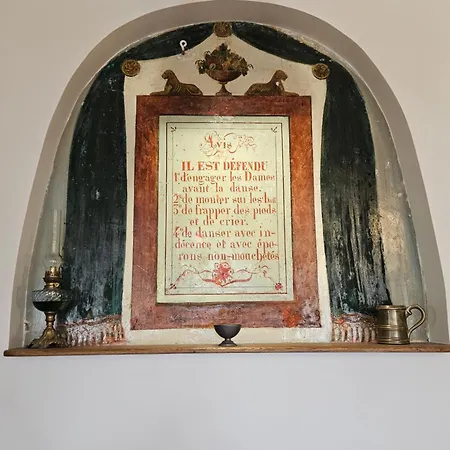 Avis
IL EST DÉFENDU
1º d'engager les Dames
avant la danse.
2º de monter sur les bancs
3º de frapper des pieds
et de crier.
4º de danser avec in-
décence et avec épe-
rons non-mouchetés